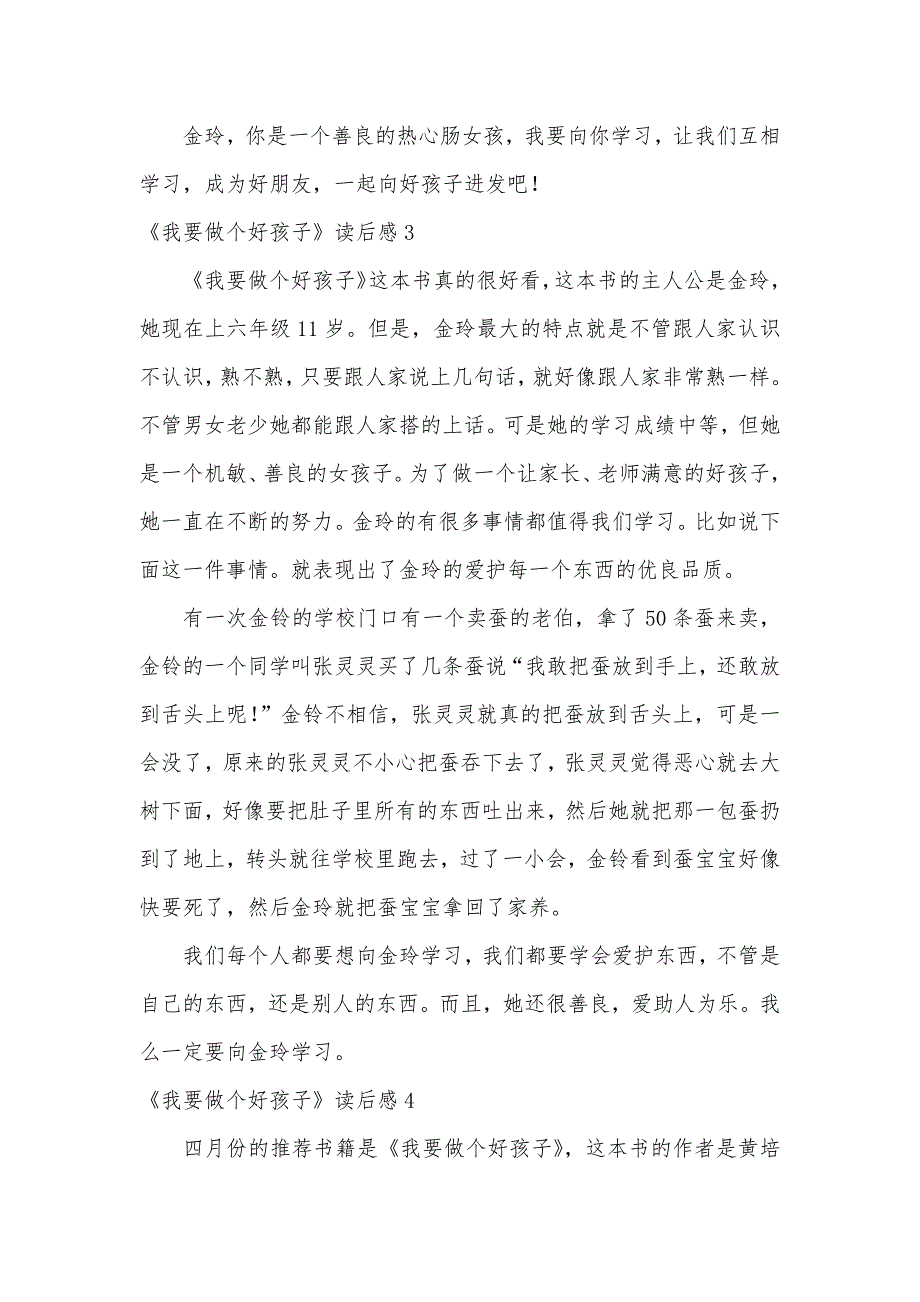 金玲，你是一个善良的热心肠女孩，我要向你学习，让我们互相
学习，成为好朋友，一起向好孩子进发吧！
《我要做个好孩子》读后感 3
《我要做个好孩子》这本书真的很好看，这本书的主人公是金玲，
她现在上六年级 11 岁。但是，金玲最大的特点就是不管跟人家认识
不认识，熟不熟，只要跟人家说上几句话，就好像跟人家非常熟一样。
不管男女老少她都能跟人家搭的上话。可是她的学习成绩中等，但她
是一个机敏、善良的女孩子。为了做一个让家长、老师满意的好孩子，
她一直在不断的努力。金玲的有很多事情都值得我们学习。比如说下
面这一件事情。就表现出了金玲的爱护每一个东西的优良品质。
有一次金铃的学校门口有一个卖蚕的老伯，拿了 50 条蚕来卖，
金铃的一个同学叫张灵灵买了几条蚕说“我敢把蚕放到手上，还敢放
到舌头上呢！”金铃不相信，张灵灵就真的把蚕放到舌头上，可是一
会没了，原来的张灵灵不小心把蚕吞下去了，张灵灵觉得恶心就去大
树下面，好像要把肚子里所有的东西吐出来，然后她就把那一包蚕扔
到了地上，转头就往学校里跑去，过了一小会，金铃看到蚕宝宝好像
快要死了，然后金玲就把蚕宝宝拿回了家养。
我们每个人都要想向金玲学习，我们都要学会爱护东西，不管是
自己的东西，还是别人的东西。而且，她还很善良，爱助人为乐。我
么一定要向金玲学习。
《我要做个好孩子》读后感 4
四月份的推荐书籍是《我要做个好孩子》，这本书的作者是黄培